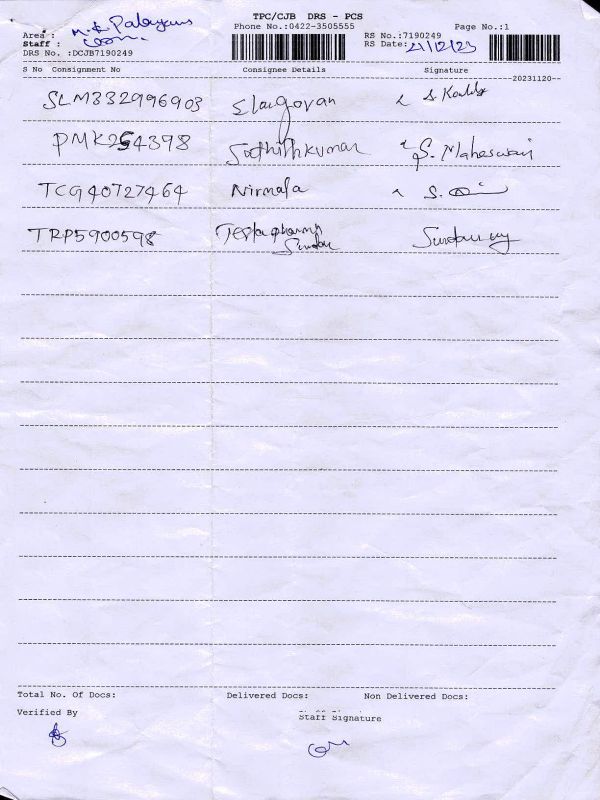 TPC/CJB DRS - PCS
Phone No.:0422-3505555
Page No.:1
Area :
Staff :
DRS No. :DCJB7190249
RS No.:7190249
RS Date: 21/12/23
S No Consignment No Consignee Details Signature
20231120
SLM332996903 Elangovan
PMK254398 Sathishkumar S. Maheswari
TCG40727464 Nirmala
TRP5900598
Total No. Of Docs: Delivered Docs: Non Delivered Docs:
Verified By
Staff Signature